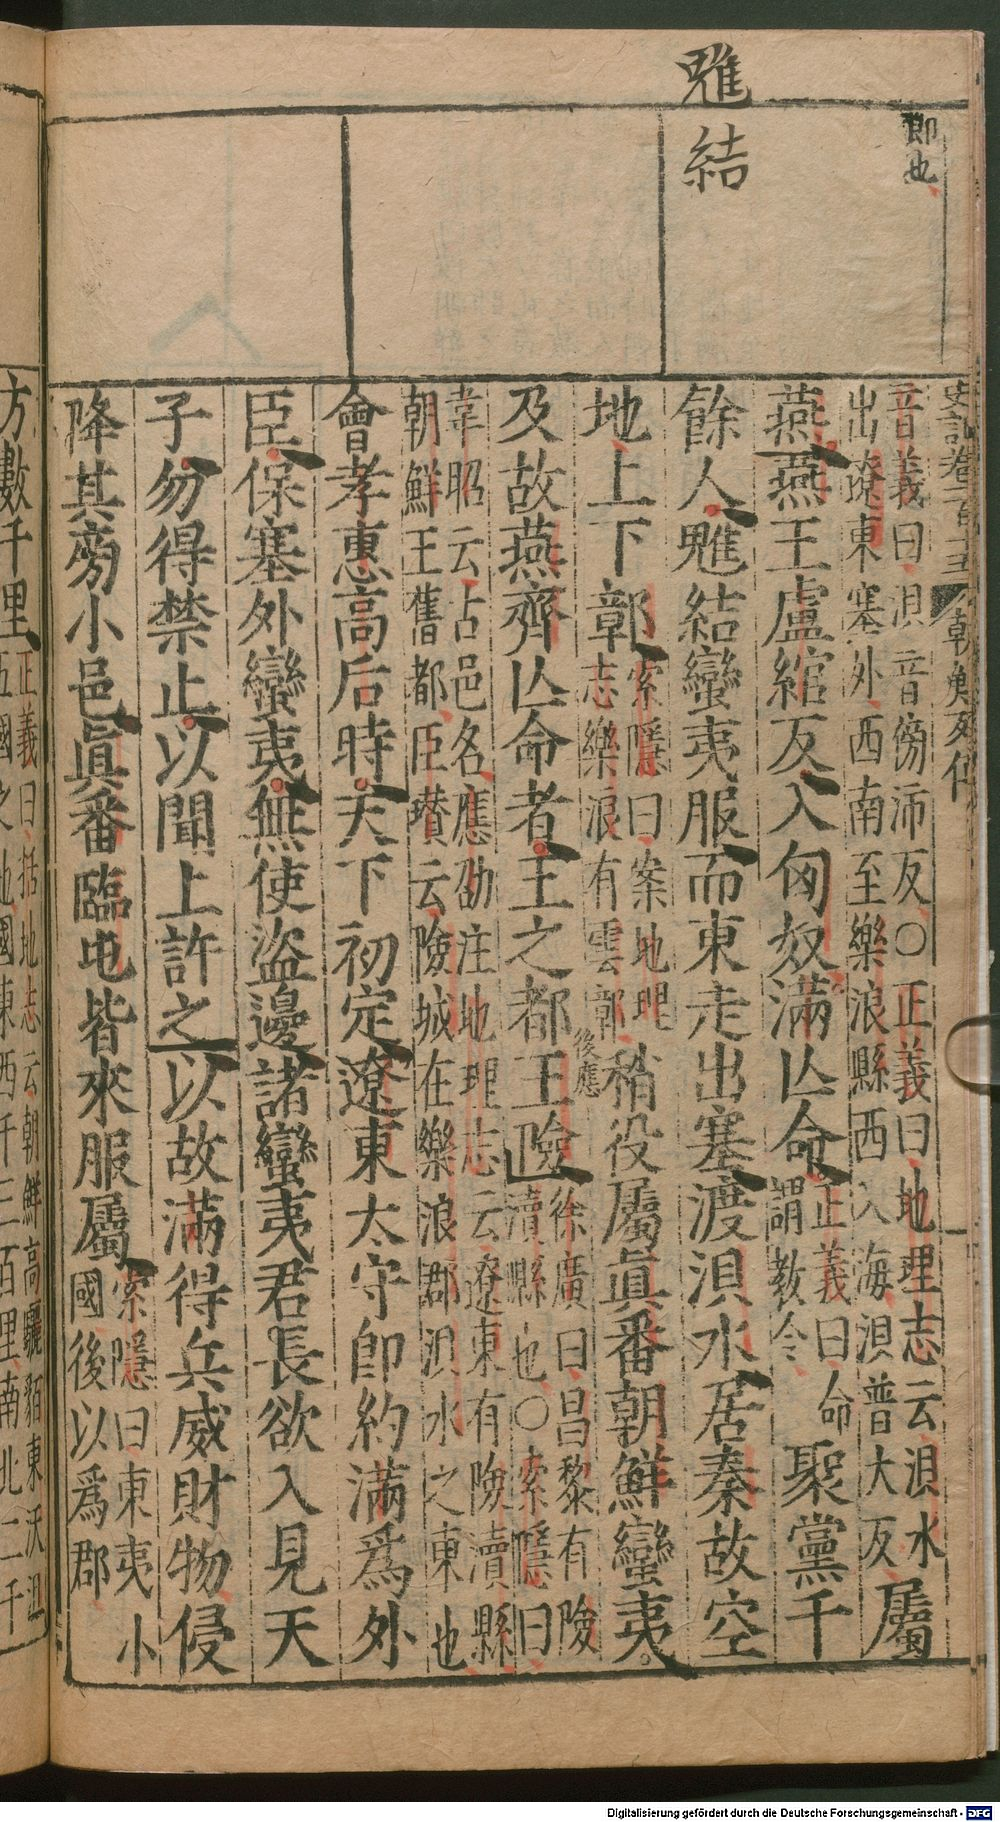 即也
魋結
史記卷一百十五 朝鮮列傳
音義曰浿音傍沛反○正義曰地理志云浿水
出遼東塞外西南至樂浪縣西入海浿普大反屬
燕燕王盧綰反入匈奴滿亾命正義曰命謂教令聚黨千
餘人魋結蠻夷服而東走出塞渡浿水居秦故空
地上下鄣索隱曰案地理志樂浪有雲鄣稍役屬眞番朝鮮蠻夷
後應
及故燕齊亾命者王之都王險徐廣曰昌黎有險瀆縣也○索隱曰
韋昭云古邑名應劭注地理志云遼東有險瀆縣
朝鮮王舊都臣瓚云險城在樂浪郡浿水之東也
會孝惠高后時天下初定遼東太守卽約滿爲外
臣保塞外蠻夷無使盜邊諸蠻夷君長欲入見天
子勿得禁止以聞上許之以故滿得兵威財物侵
降其旁小邑眞番臨屯皆來服屬索隱曰東夷小國後以爲郡
方數千里正義曰括地志云朝鮮高驪貊東沃沮
五國之地國東西千三百里南北二千
Digitalisierung gefördert durch die Deutsche Forschungsgemeinschaft - DFG